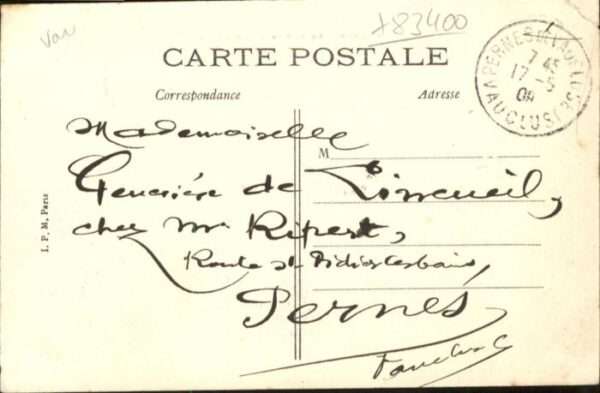 Var
+83400
CARTE POSTALE
Correspondance
Adresse
PERNES
VAUCLUSE
7 45
17 -5
09
Mademoiselle
M
Geneviève de Linceuil,
chez Mr Ripert,
Route St Didier les bains,
Pernes
Vaucluse
I. P. M. Paris